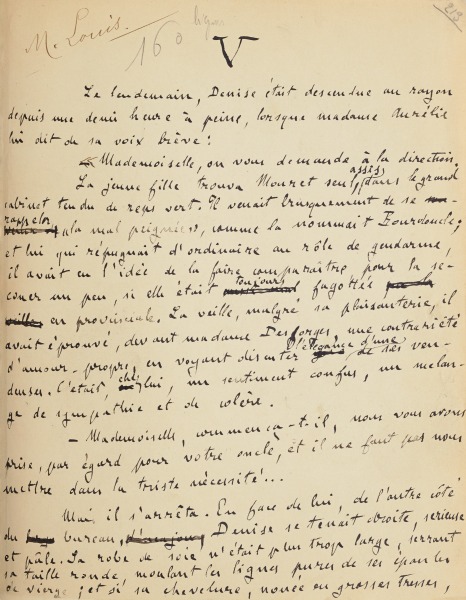 213
M. Louis.
160 lignes
V
Le lendemain, Denise était descendue au rayon
depuis une demi heure à peine, lorsque madame Aurélie
lui dit de sa voix brève :
— Mademoiselle, on vous demande à la direction.
La jeune fille trouva Mouret seul, assis dans le grand
cabinet tendu de reps vert. Il venait brusquement de se
rappeler « la mal peignée », comme la nommait Bourdoncle ;
et lui qui répugnait d'ordinaire au rôle de gendarme,
il avait eu l'idée de la faire comparaître pour la se-
couer un peu, si elle était toujours fagotée
en provinciale. La veille, malgré sa plaisanterie, il
avait éprouvé, devant madame Desforges, une contrariété
d'amour-propre, en voyant discuter l'élégance d'une de ses ven-
deuses. C'était, chez lui, un sentiment confus, un mélan-
ge de sympathie et de colère.
— Mademoiselle, commença-t-il, nous vous avons
prise, par égard pour votre oncle, et il ne faut pas nous
mettre dans la triste nécessité...
Mais il s'arrêta. En face de lui, de l'autre côté
du bureau, Denise se tenait droite, sérieuse
et pâle. Sa robe de soie n'était plus trop large, serrant
sa taille ronde, moulant les lignes pures de ses épaules
de vierge ; et si sa chevelure, nouée en grosses tresses,